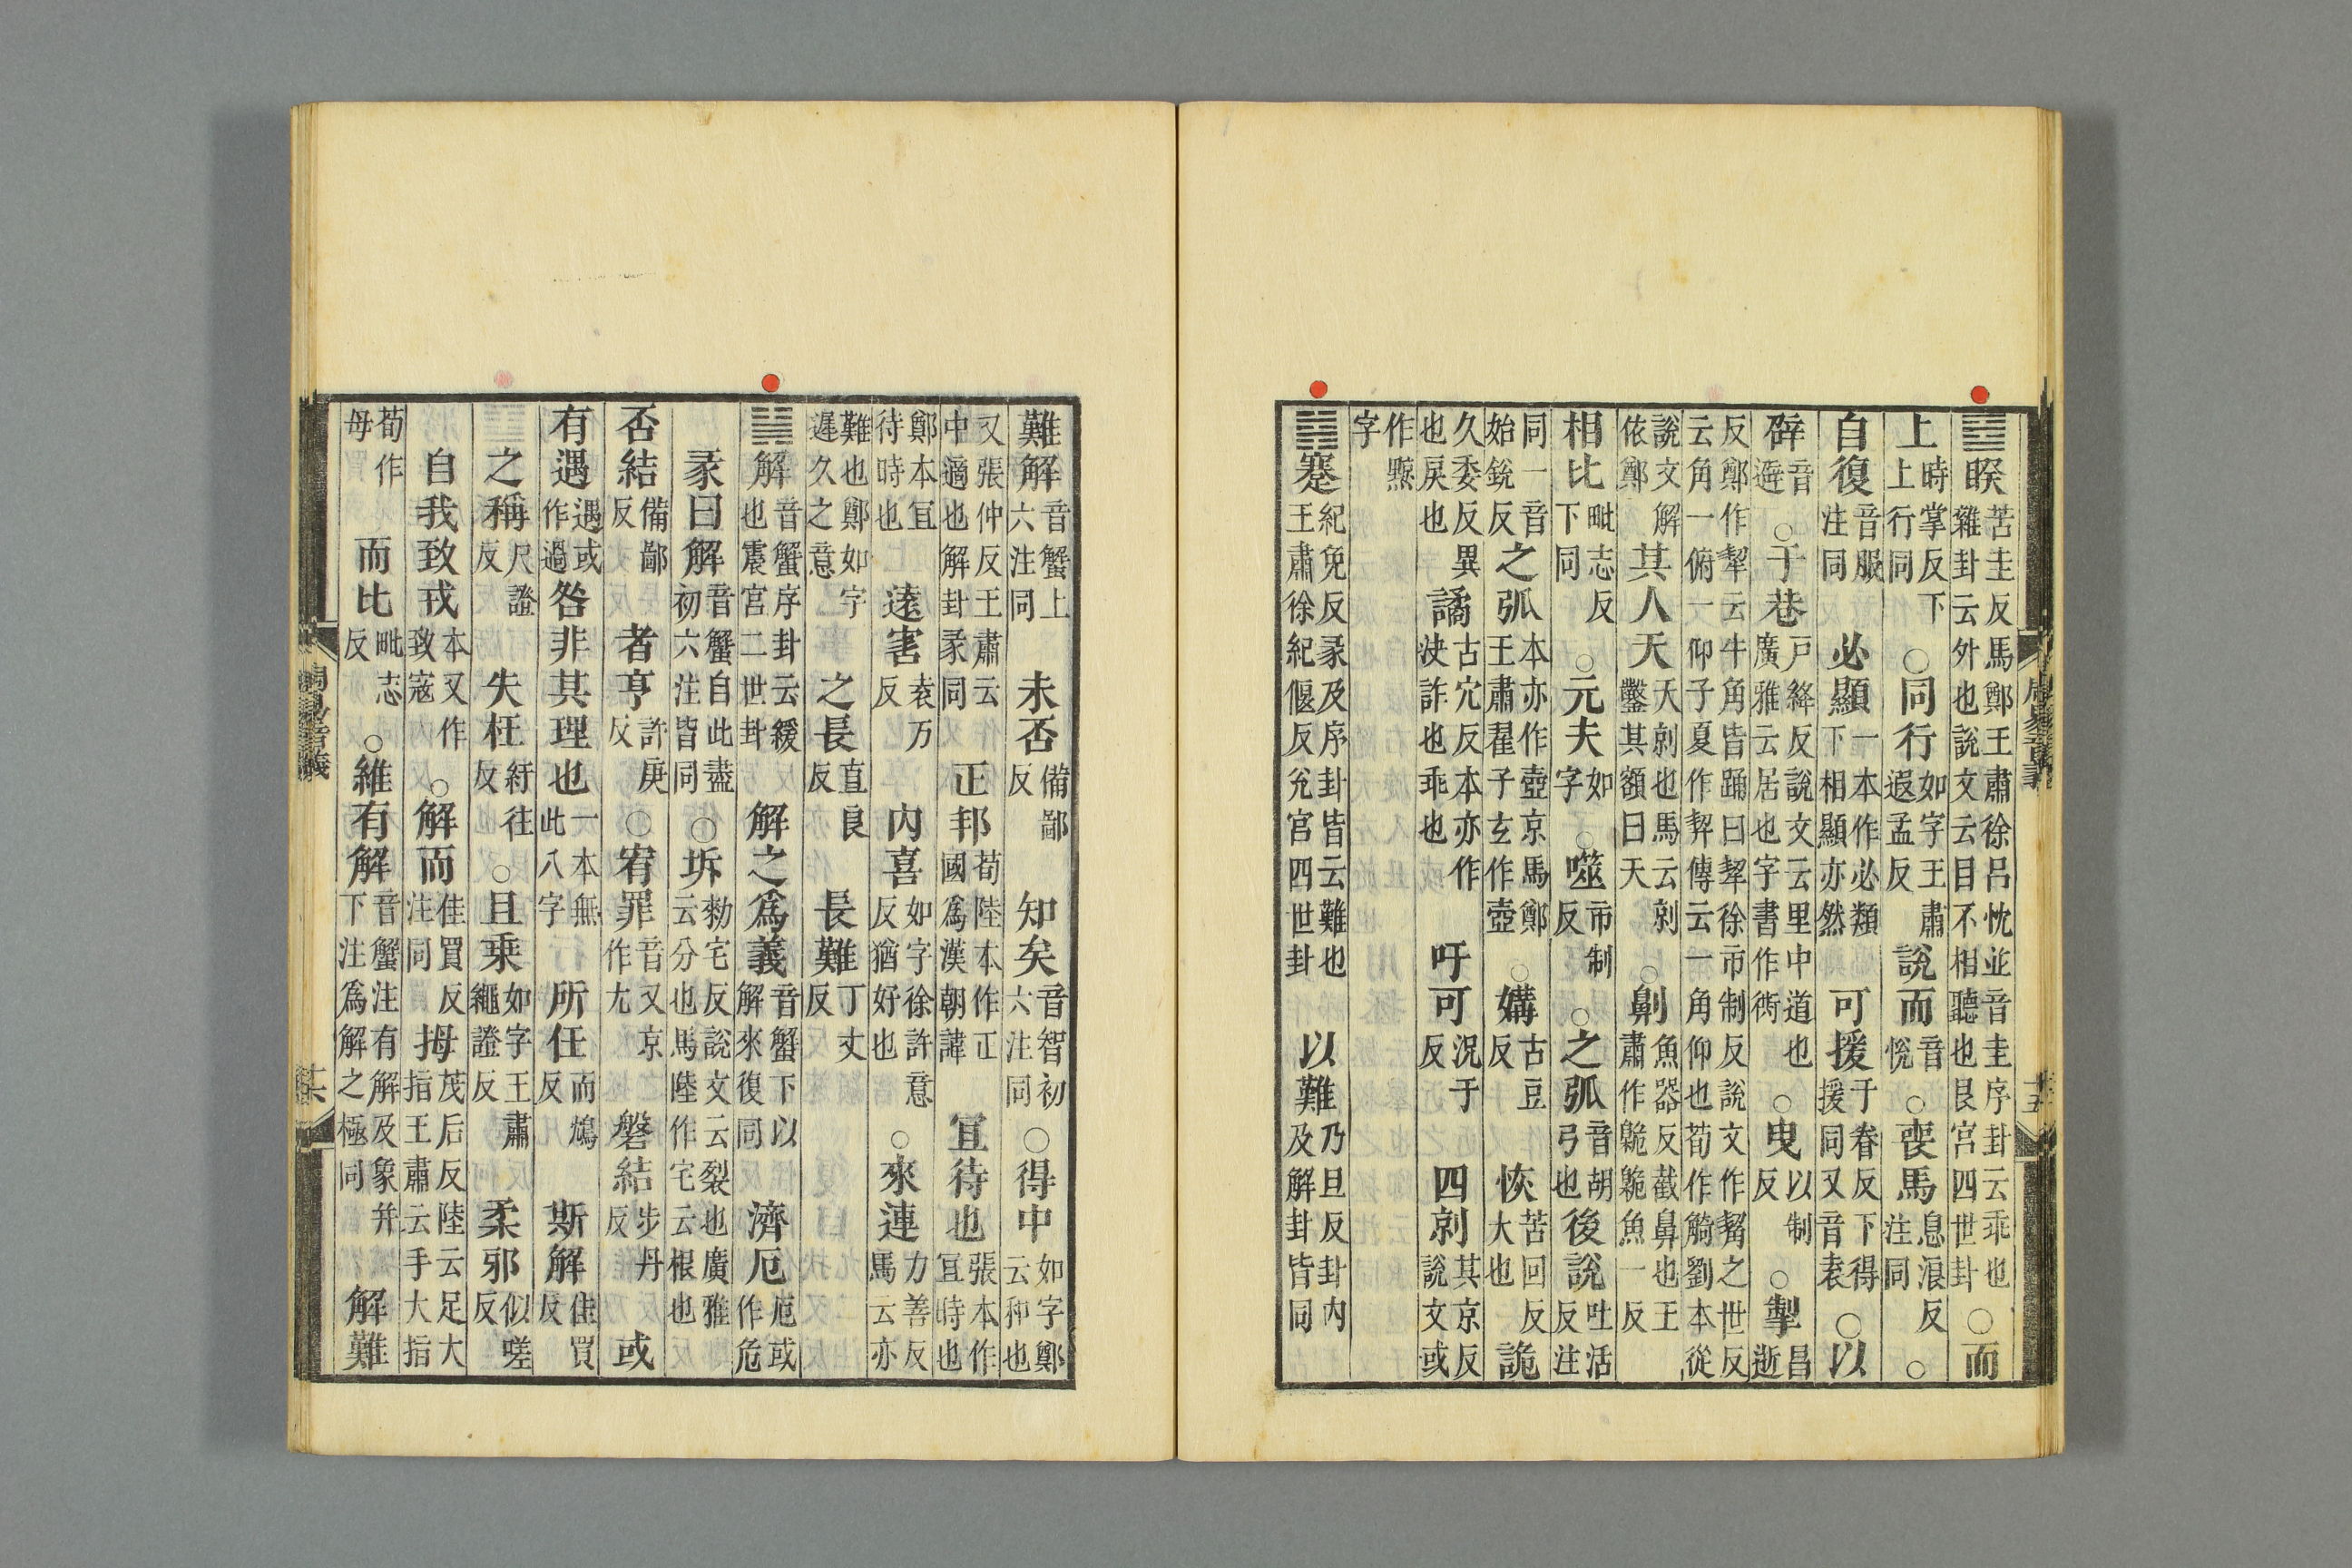 ䷥睽苦圭反馬鄭王肅徐呂忱並音圭序卦云乖也雜卦云外也說文云目不相聽也艮宮四世卦○而
上時掌反下上行同○同行如字王肅遐孟反說而音悅○喪馬息浪反注同○
自復音服注同必顯一本作必類下相顯亦然可援于眷反下得援同又音袁○以
辟音避○于巷戶絳反說文云里中道也廣雅云居也字書作衖○曳以制反○掣昌逝
反鄭作犎云牛角皆踊曰犎徐市制反說文作觢之世反云角一俯一仰子夏作挈傳云一角仰也荀作觭劉本從
說文解依鄭其人天天剠也馬云剠鑿其額曰天○劓魚器反截鼻也王肅作臲臲魚一反
相比毗志反下同○元夫如字○噬市制反○之弧音胡弓也後說吐活反注
同一音始銳反之弧本亦作壺京馬鄭王肅翟子玄作壺○媾古豆反恢苦回反大也詭
久委反異也戾也譎古穴反本亦作決詐也乖也乖也吁可況于反四剠其京反說文或
作黥字
䷦蹇紀免反彖及序卦皆云難也王肅徐紀偃反兊宮四世卦以難乃旦反卦內及解卦皆同
難解音蟹上六注同未否備鄙反知矣音智初六注同○得中如字鄭云和也
又張仲反王肅云中適也解卦彖同正邦荀陸本作正國爲漢朝諱宜待也張本作宜時也
鄭本宜待時也遠害袁万反內喜如字徐許意反猶好也○來連力善反馬云亦
難也鄭如字遲久之意之長直良反長難丁丈反
䷧解音蟹序卦云緩也震宮二世卦解之爲義音蟹下以解來復同濟厄厄或作危
彖曰解音蟹自此盡初六注皆同○坼勑宅反說文云裂也廣雅云分也馬陸作宅云根也
否結備鄙反者亨許庚反○宥罪音又京作尢磐結步丹反或
有遇遇或作過咎非其理也一本無此八字所任而鴆反斯解佳買反
之稱尺證反失枉紆往反○且乘如字王肅繩證反柔邪似嗟反
自我致戎本又作致寇○解而佳買反注同拇茂后反陸云足大指王肅云手大指
荀作母而比毗志反○維有解音蟹注有解及象并下注爲解之極同解難